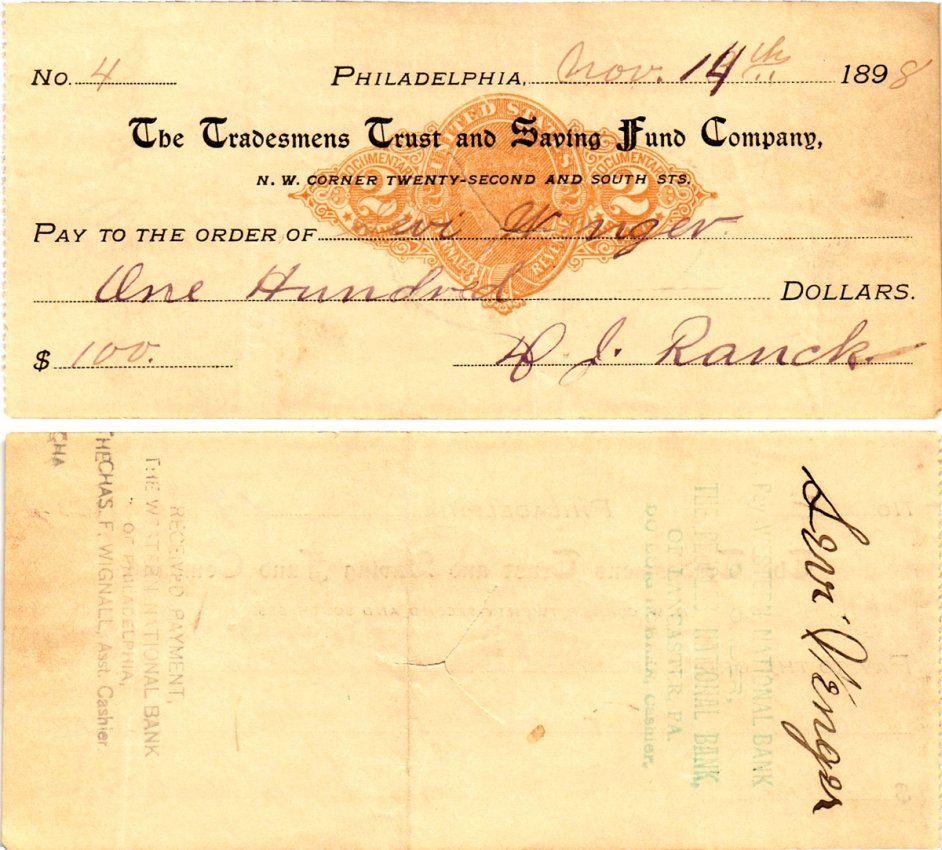 No. 4 PHILADELPHIA, Nov. 14th 1898
The Tradesmens Trust and Saving Fund Company,
N. W. CORNER TWENTY-SECOND AND SOUTH STS.
UNITED STATES
DOCUMENTARY 2 2 DOCUMENTARY
INTERNAL REVENUE
PAY TO THE ORDER OF Levi Wenger
One Hundred DOLLARS.
$ 100.
D. J. Ranck
CHA
CHAS. F. WIGNALL, Asst. Cashier.
OF PHILADELPHIA,
THE WESTERN NATIONAL BANK
RECEIVED PAYMENT,
Cashier.
OF LANCASTER, PA.
THE NATIONAL BANK,
NATIONAL BANK
Levi Wenger